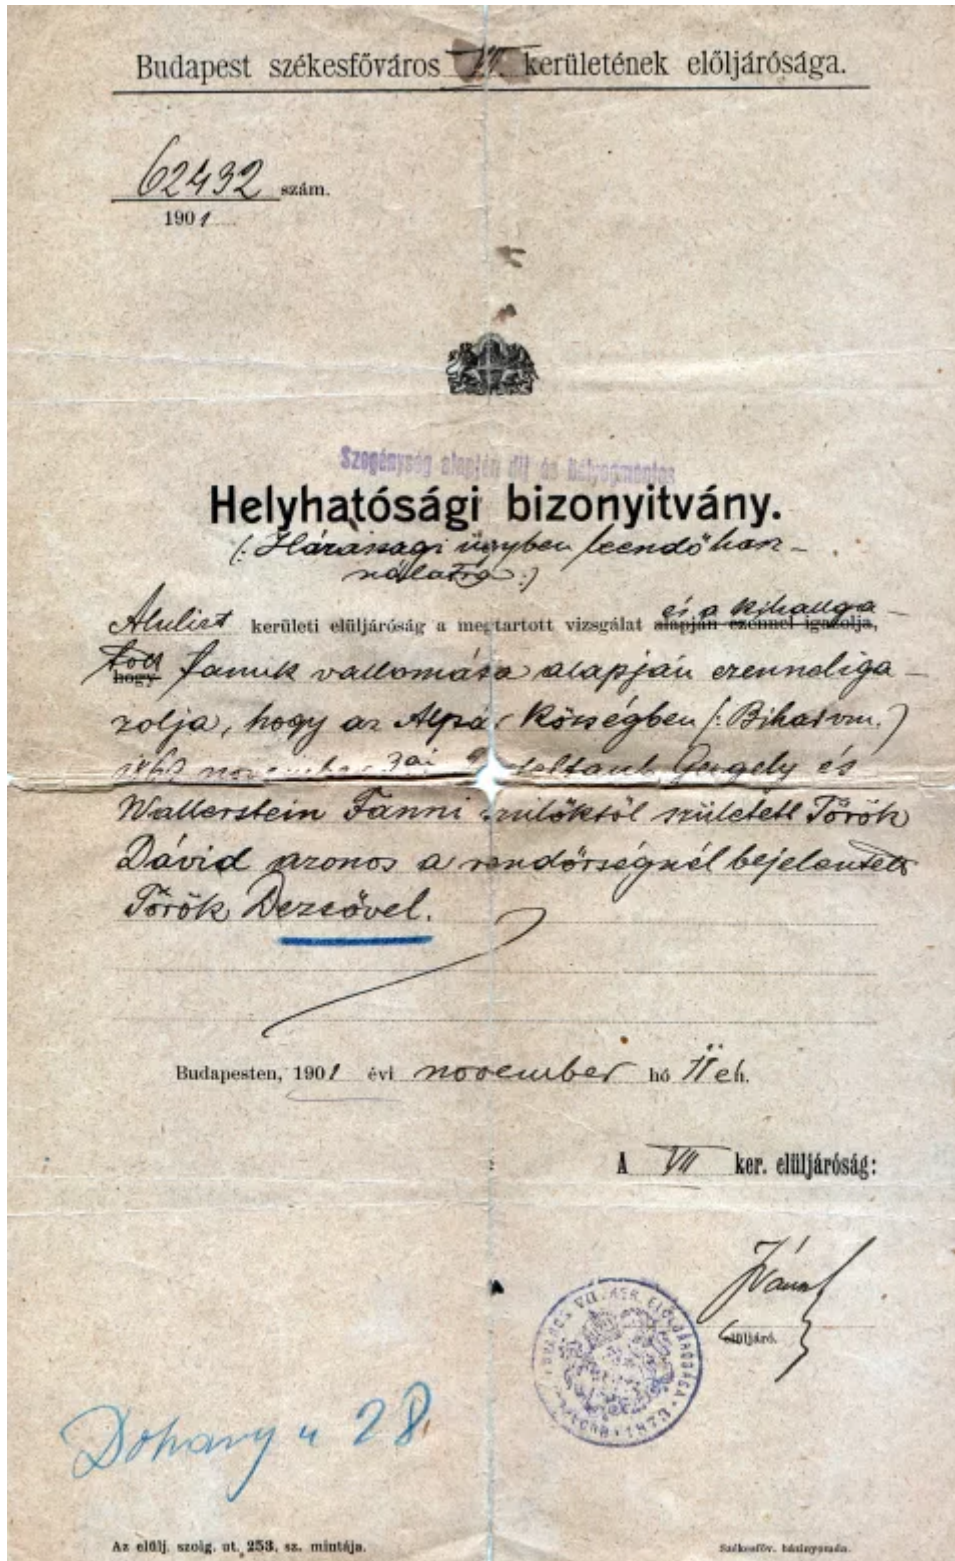 Budapest székesfőváros VII kerületének előljárósága.
62432 szám.
1901
Szegénység alapján díj és bélyegmentes
Helyhatósági bizonyitvány.
(: Házassagi ügyben leendő hasz-
nálatra :)
Alulirt kerületi elüljáróság a megtartott vizsgálat és a kihallga-
alapján ezennel igazolja,
tott
hogy tanuk vallomása alapján ezennel iga-
zolja, hogy az községben (: Biharvm. )
november Gergely és
Wallerstein Fanni szülőktől született Török
Dávid azonos a rendőrségnél bejelentett
Török Dezsővel.
Budapesten, 1901 évi november hó 11 én.
A VII ker. elüljáróság:
elüljáró.
VII. KER. ELÖLJÁRÓSÁGA 1873
Dohany u 28.
Az elülj. szolg. ut. 253. sz. mintája.
Székesföv. házinyomda.